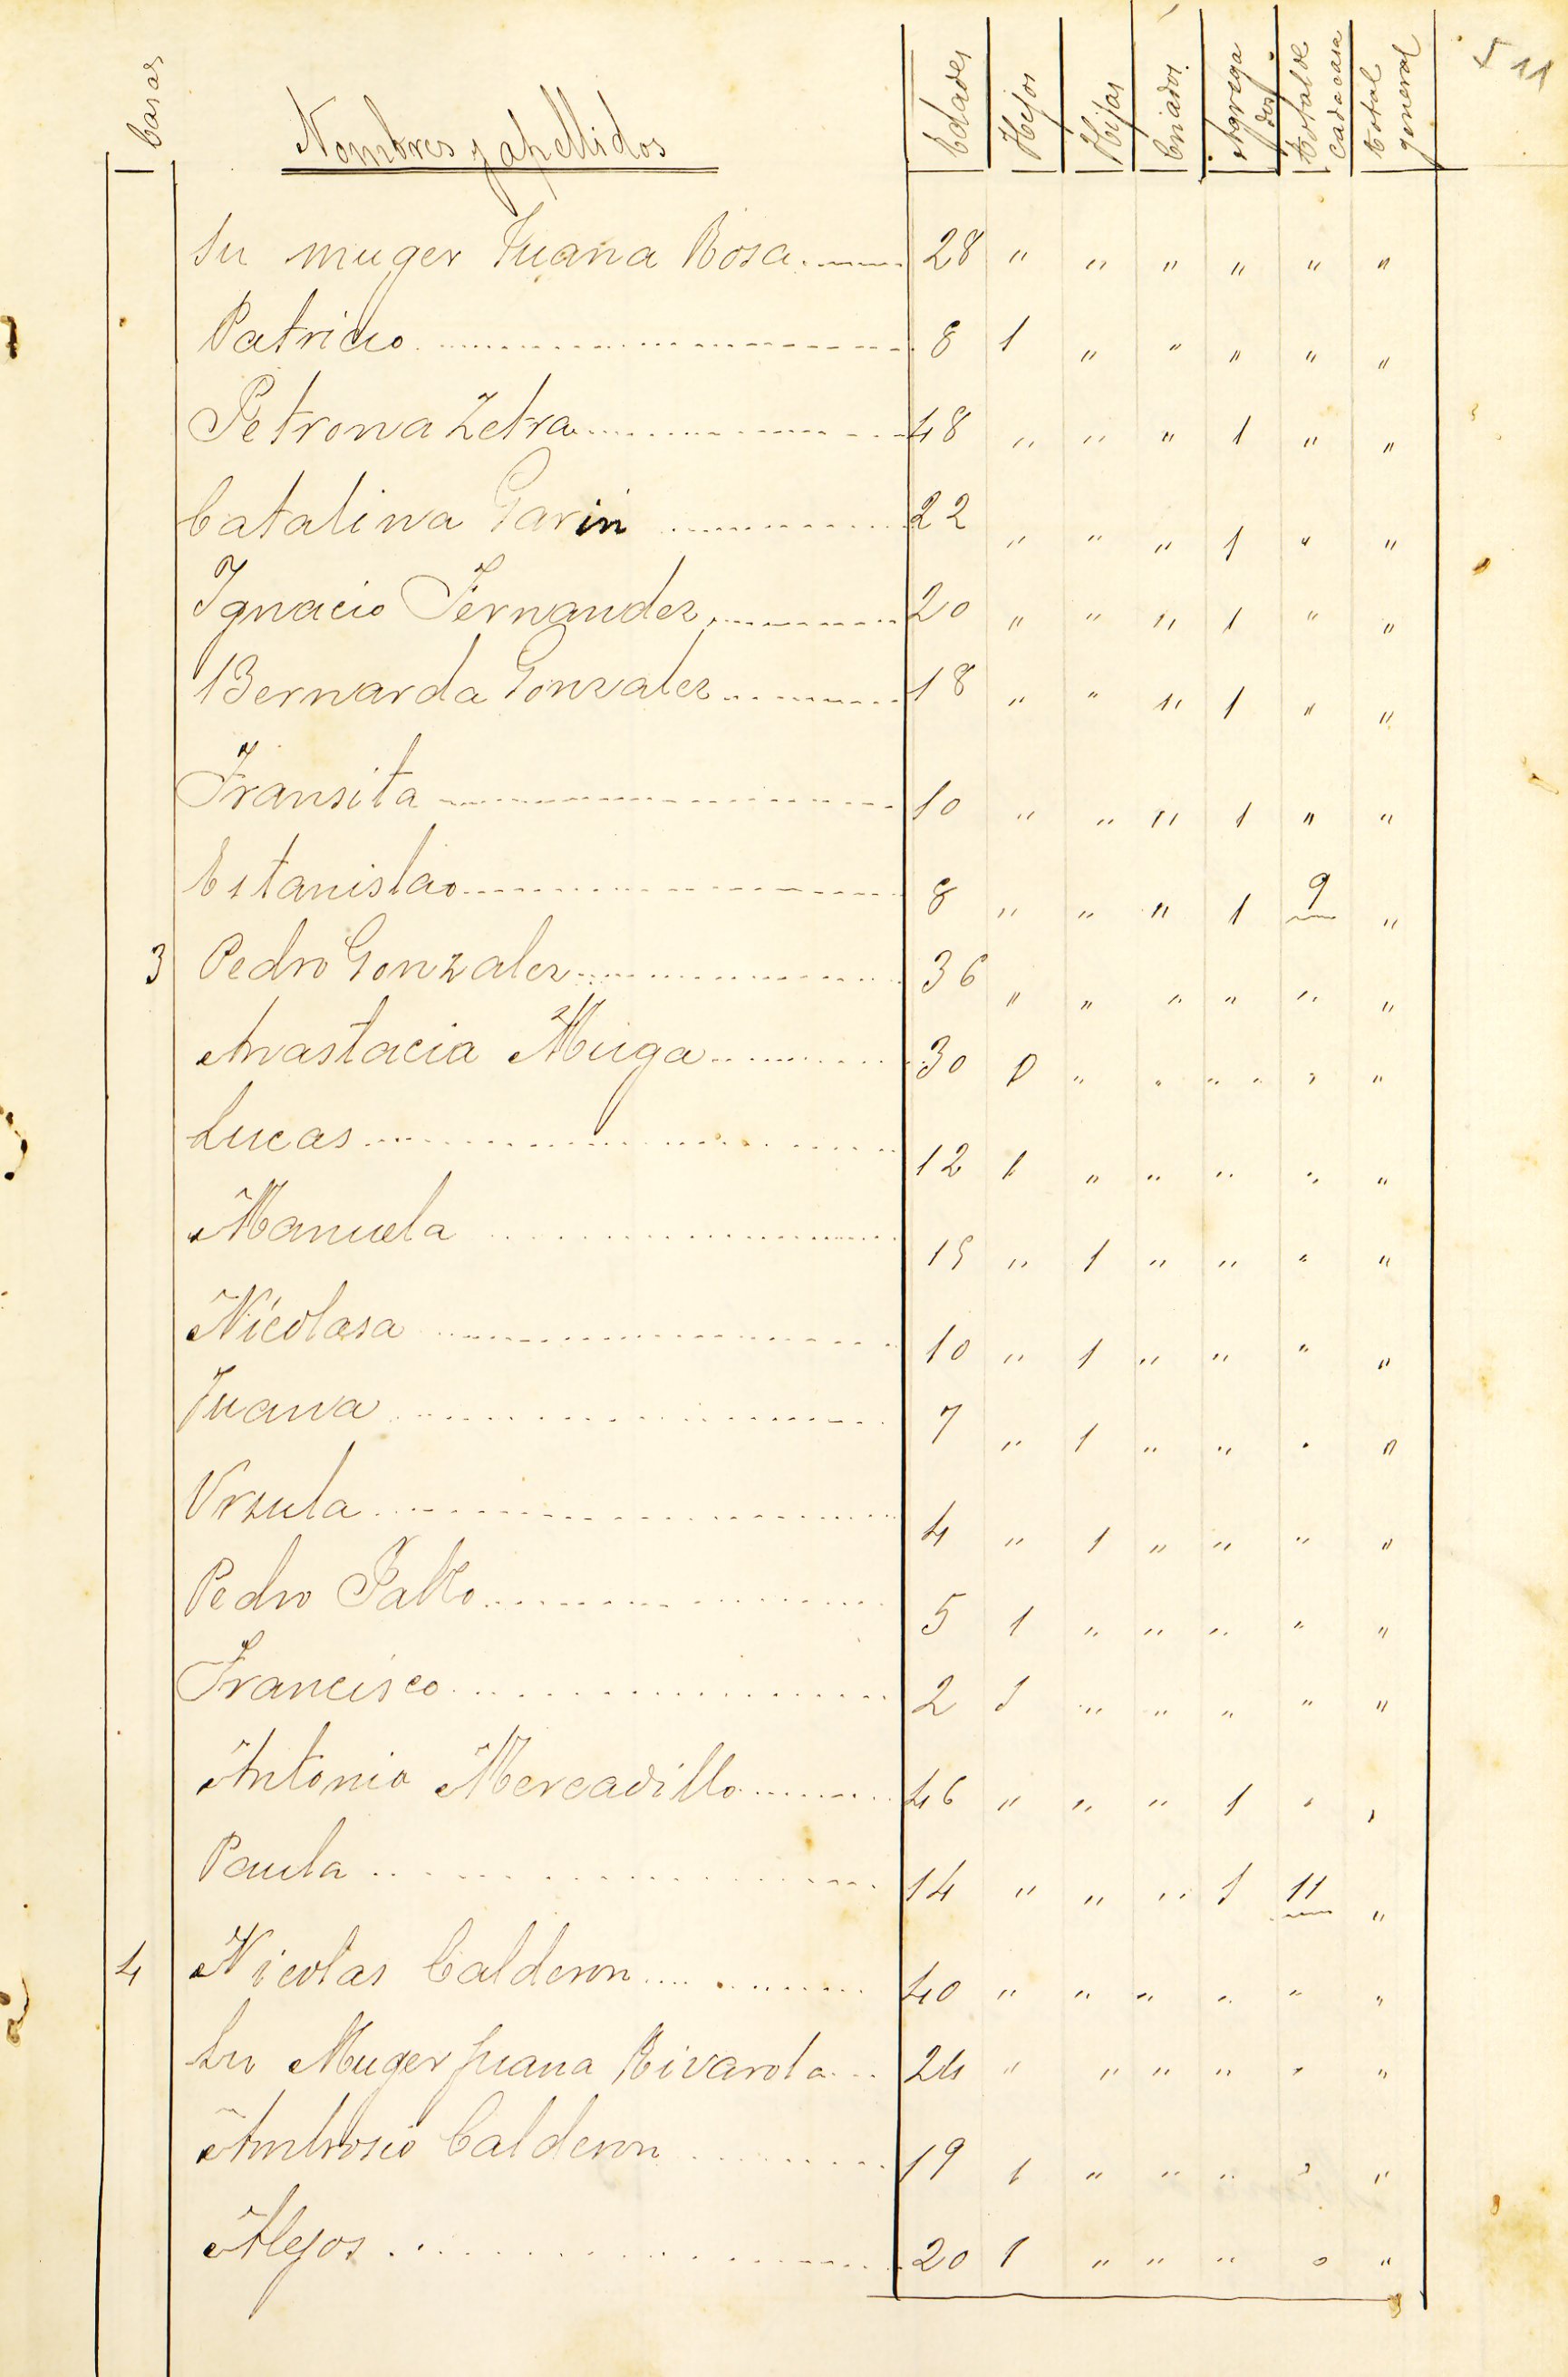 Casas Nombres y apellidos Edades Hijos Hijas Criados Agregados Total de cada casa Total general 11
Su muger Juana Rosa 28 " " " " " "
Patricio 8 1 " " " " "
Petrona Zetra 48 " " " 1 " "
Catalina Garin 22 " " " 1 " "
Ignacio Fernandez 20 " " " 1 " "
Bernarda Gonzalez 18 " " " 1 " "
Transita 10 " " " 1 " "
Estanislao 8 " " " 1 9 "
3 Pedro Gonzalez 36 " " " " " "
Anastacia Muga 30 " " " " "
Lucas 12 1 " " " " "
Manuela 15 " 1 " " " "
Nicolasa 10 " 1 " " " "
Juana 7 " 1 " " " "
Vrsula 4 " 1 " " " "
Pedro Pablo 5 1 " " " " "
Francisco 2 1 " " " " "
Antonio Mercadillo 46 " " " 1 " "
Paula 14 " " " 1 11 "
4 Nicolas Calderon 40 " " " " " "
Su Muger Juana Rivarola 24 " " " " " "
Ambrosio Calderon 19 1 " " " " "
Alejos 20 1 " " " " "